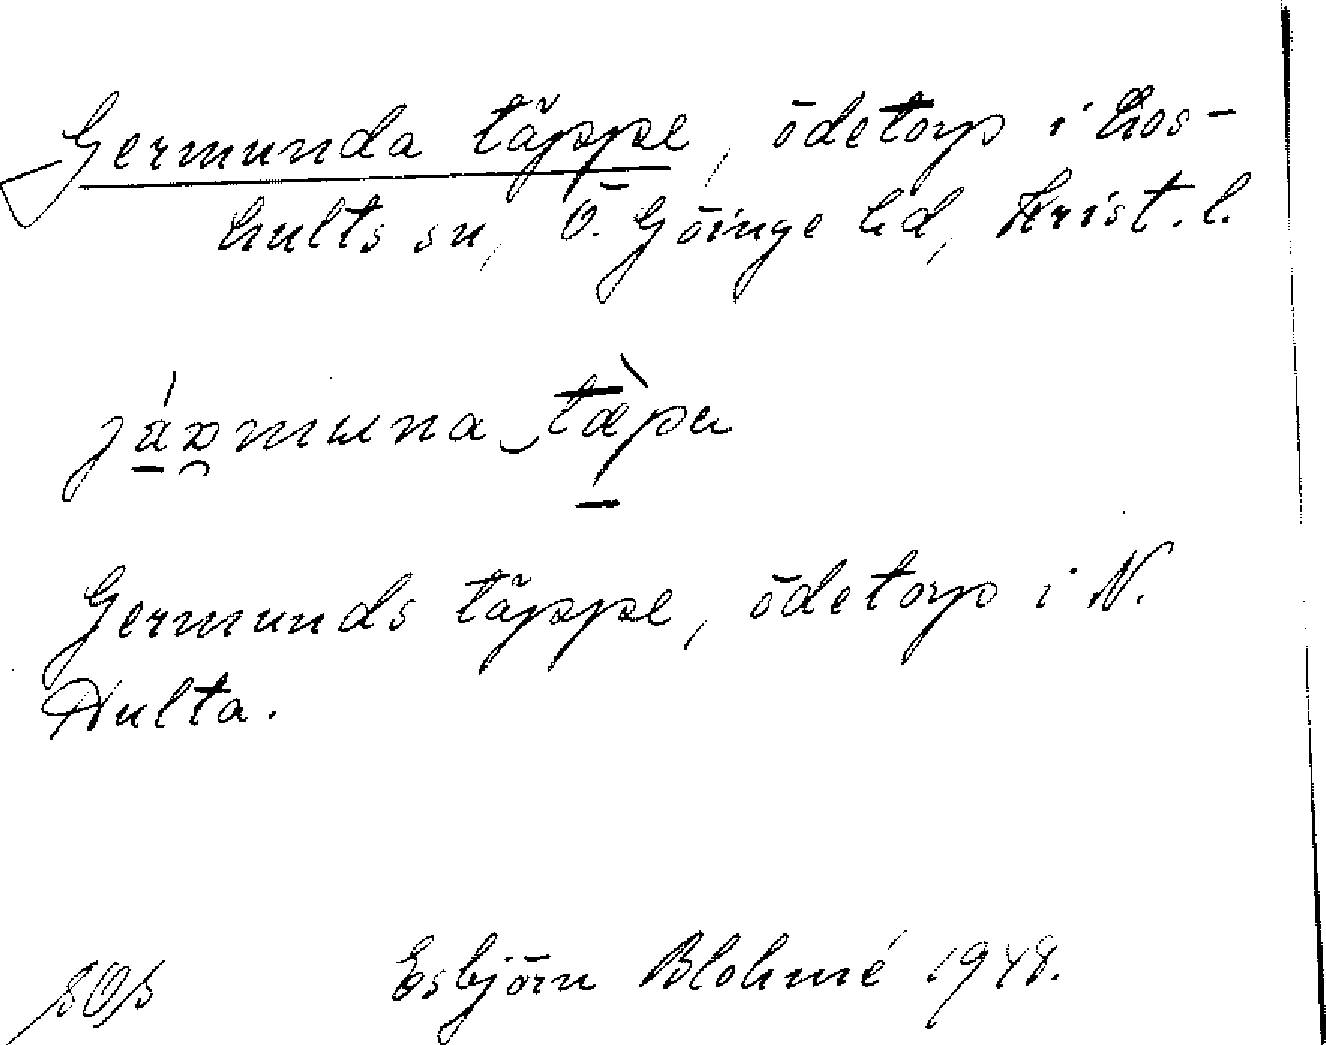 Germunda täppe, ödetorp i Los-
hults sn, Ö. Göinge hd, Krist. l.
Germunds täppe, ödetorp i N.
Hulta.
Esbjörn Blohmé 1948.